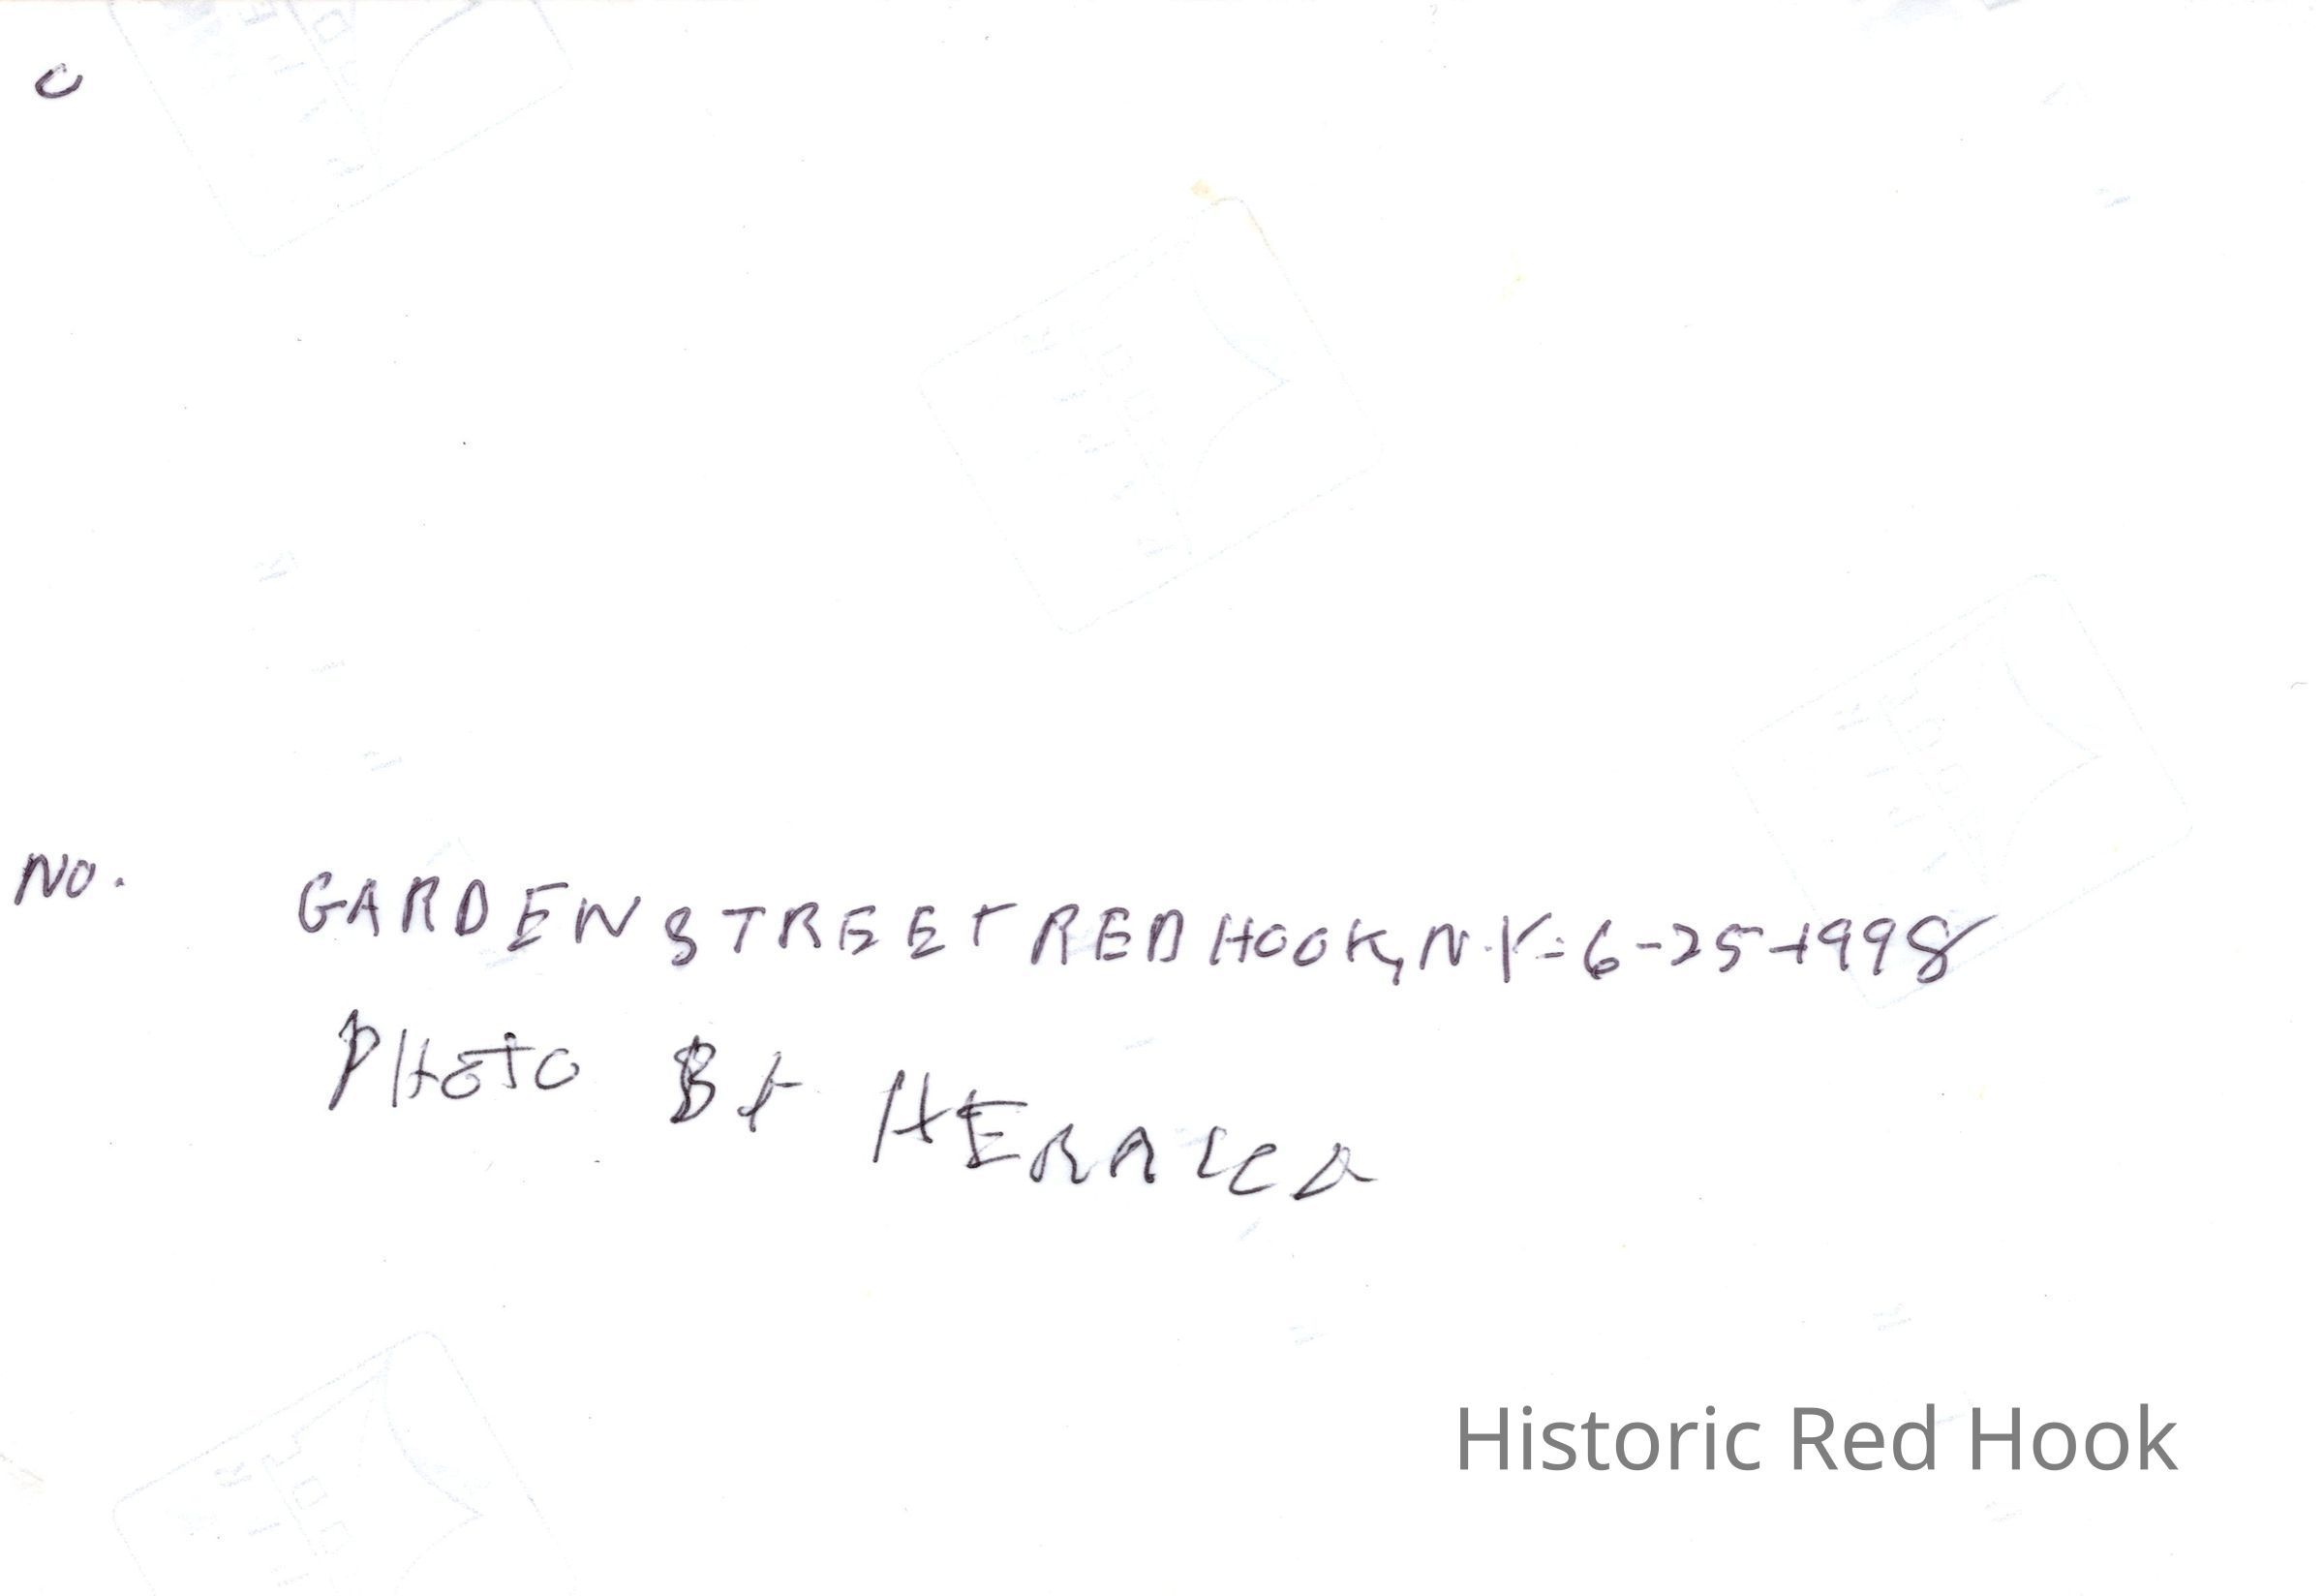 C
NO. GARDEN STREET RED HOOK, N.Y = 6-25-1998
PHOTO BY
Historic Red Hook